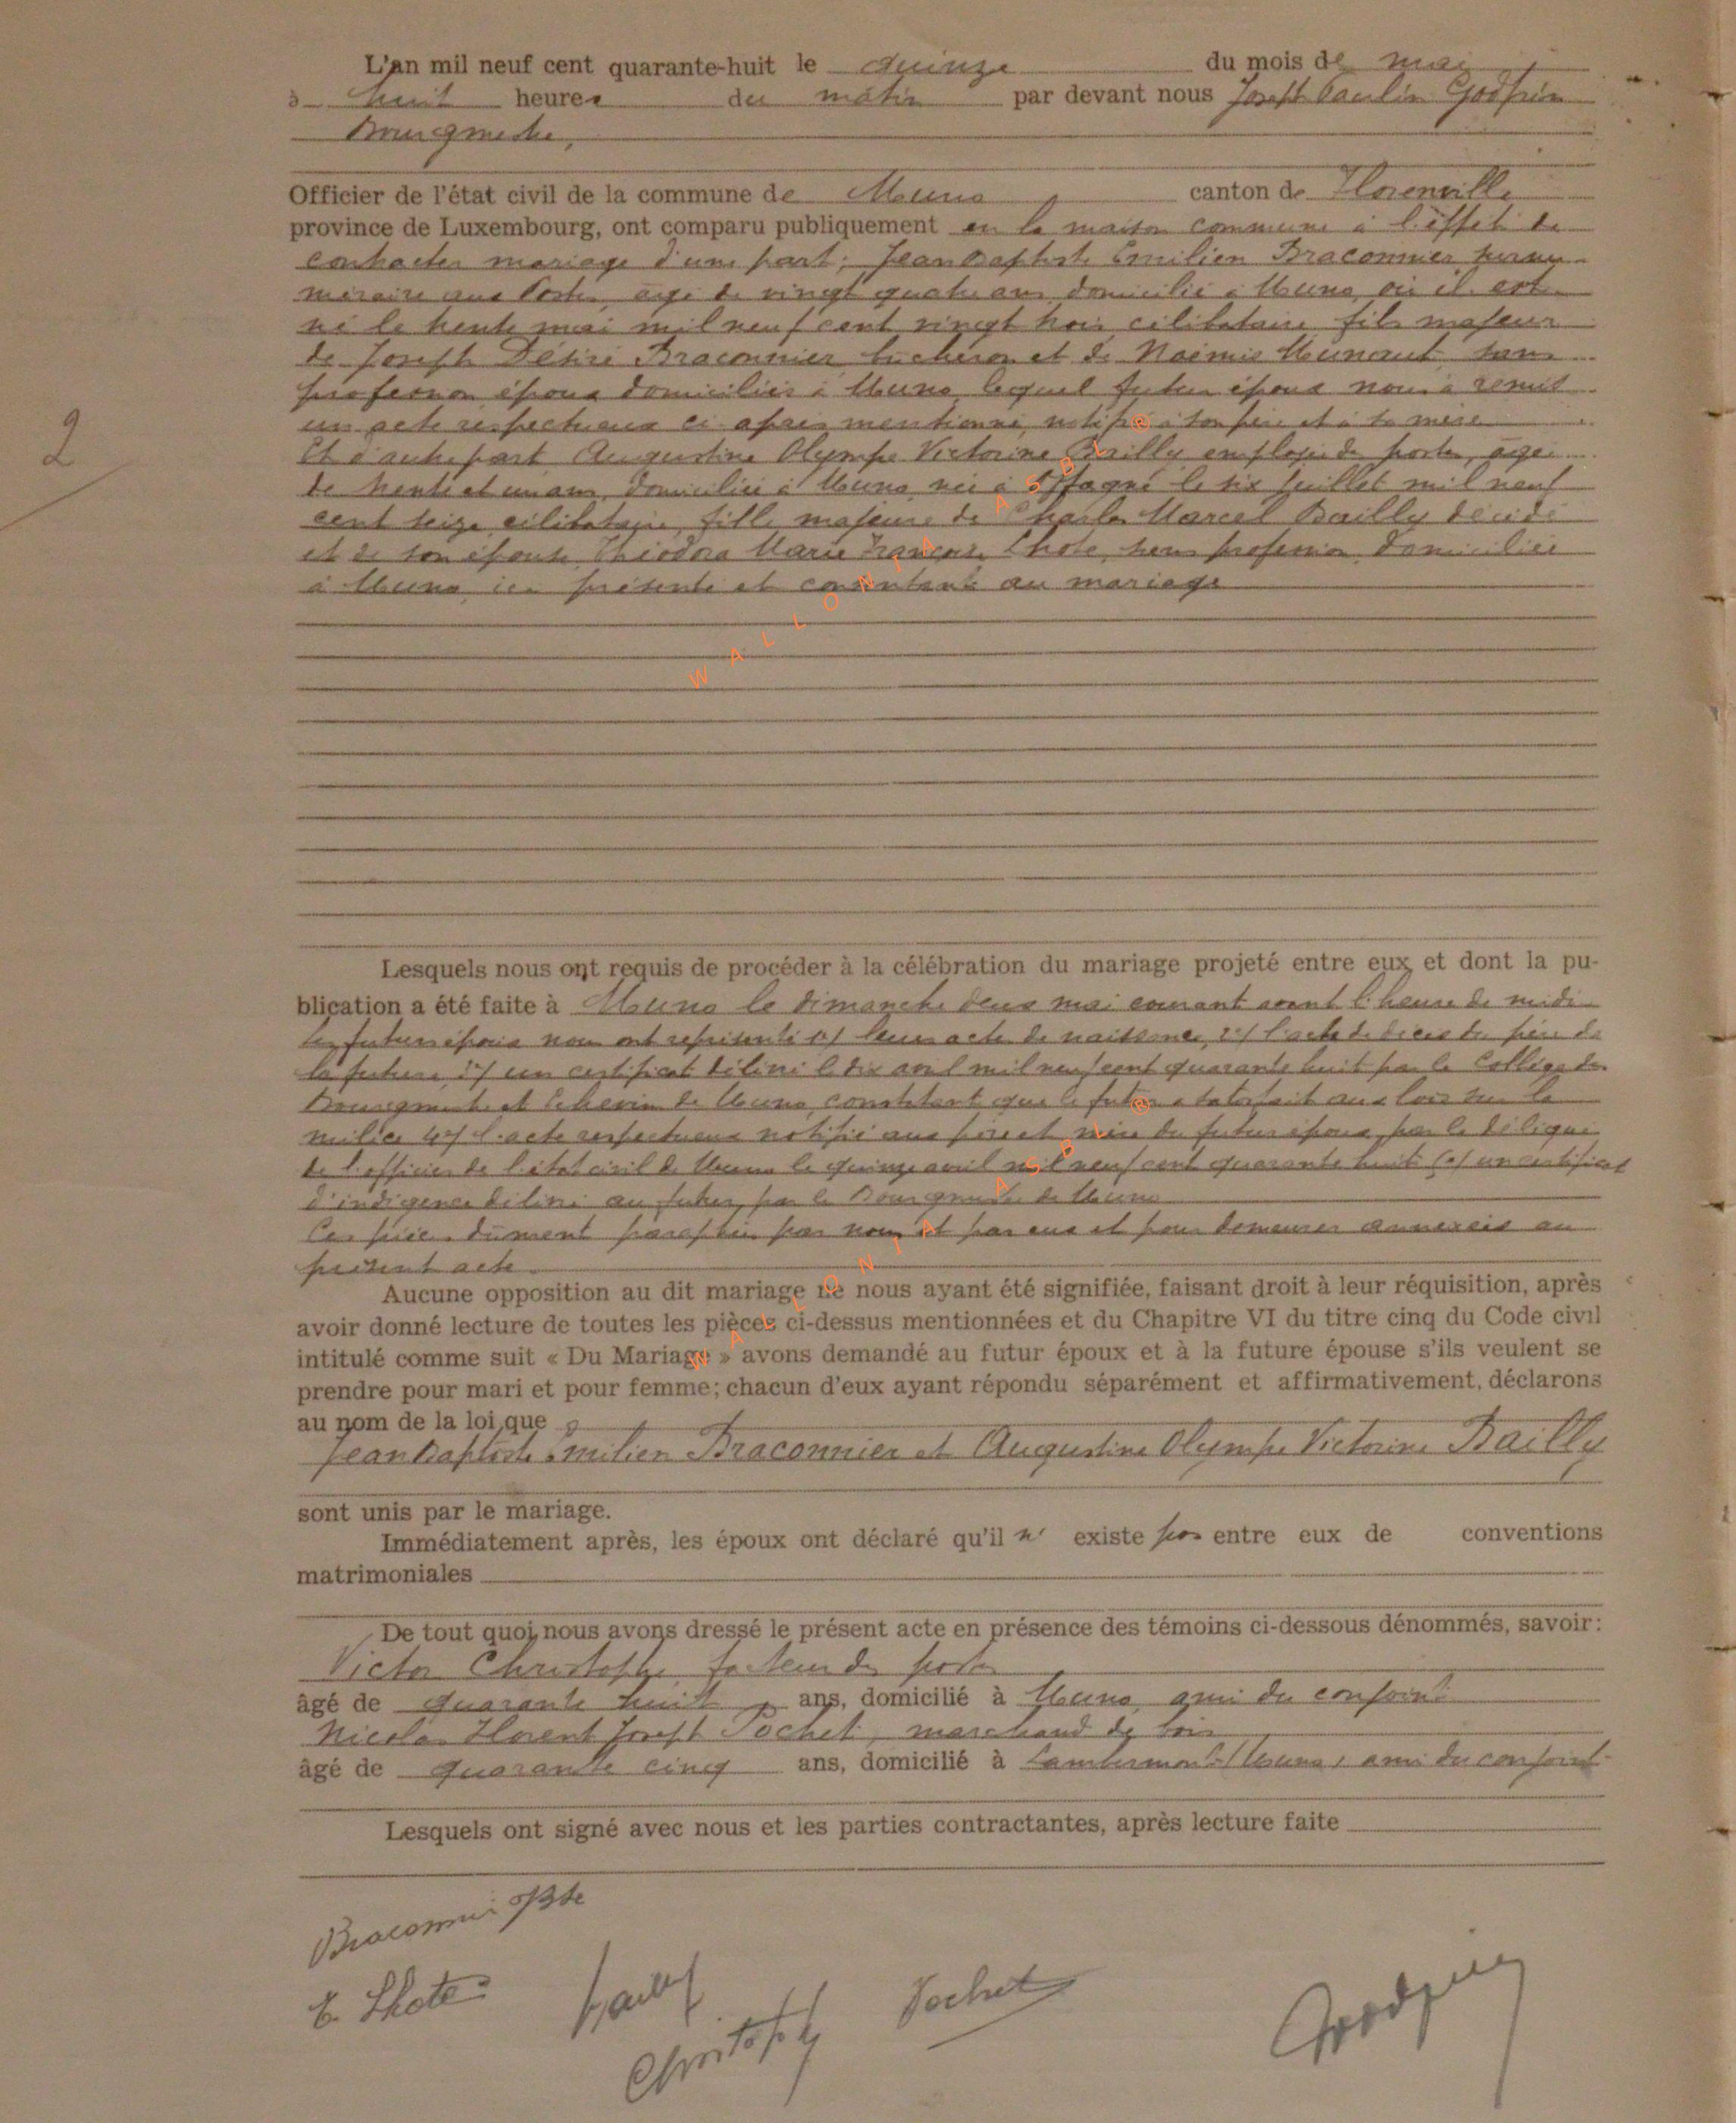 L'an mil neuf cent quarante-huit le quinze du mois de mai
à huit heures du matin par devant nous Joseph Paulin Godfrin
Bourgmestre,
Officier de l'état civil de la commune de Muno canton de Florenville
province de Luxembourg, ont comparu publiquement en la maison commune à l'effet de
contracter mariage d'une part; Jean Baptiste Emilien Braconnier surnu-
méraire aux Postes, âgé de vingt quatre ans domicilié à Muno, où il est
né le trente mai mil neuf cent vingt trois célibataire fils majeur
de Joseph Désiré Braconnier bucheron et de Noémie Munaut sans
profession époux domiciliés à Muno lequel futur époux nous a remis
un acte respectueux ci après mentionné, notifié à son père et à sa mère
2
Et d'autre part Augustine Olympe Victorine Bailly employée de postes, âgée
de trente et un ans, domiciliée à Muno née à le six juillet mil neuf
cent seize célibataire, fille majeure de Charles Marcel Bailly décédé
et de son épouse Théodora Marie Françoise Lhote, sans profession domiciliée
à Muno ici présente et consentant au mariage
WALLONIA ASBL @
Lesquels nous ont requis de procéder à la célébration du mariage projeté entre eux et dont la pu-
blication a été faite à Muno le dimanche deux mai courant avant l'heure de midi
les futurs époux nous ont représenté 1°/ leurs acte de naissance, 2°/ l'acte de décès du père de
la future, 3°/ un certificat délivré le dix avril mil neuf cent quarante huit par le Collège des
Bourgmestre et Echevins de Muno, constatant que le futur a satisfait aux lois sur la
milice 4°/ l'acte respectueux notifié aux père et mère du futur époux par le délégué
de l'officier de l'état civil de Muno le quinze avril mil neuf cent quarante huit 5°/ un certificat
d'indigence délivré au futur, par le Bourgmestre de Muno
Ces pièces dûment paraphées par nous et par eux et pour demeurer annexées au
présent acte.
Aucune opposition au dit mariage ne nous ayant été signifiée, faisant droit à leur réquisition, après
avoir donné lecture de toutes les pièces ci-dessus mentionnées et du Chapitre VI du titre cinq du Code civil
intitulé comme suit « Du Mariage » avons demandé au futur époux et à la future épouse s'ils veulent se
prendre pour mari et pour femme; chacun d'eux ayant répondu séparément et affirmativement, déclarons
au nom de la loi, que
Jean Baptiste Emilien Braconnier et Augustine Olympe Victorine Bailly
sont unis par le mariage.
Immédiatement après, les époux ont déclaré qu'il n' existe pas entre eux de conventions
matrimoniales
De tout quoi nous avons dressé le présent acte en présence des témoins ci-dessous dénommés, savoir:
Victor Christophe, facteur des postes
âgé de quarante huit ans, domicilié à Muno, ami du conjoint
Nicolas Florent Joseph Pochet, marchand de bois
âgé de quarante cinq ans, domicilié à Lambermont (Muno) ami du conjoint
Lesquels ont signé avec nous et les parties contractantes, après lecture faite
Braconnier JBte
Lhote Bailly Christophe Pochet Godfrin